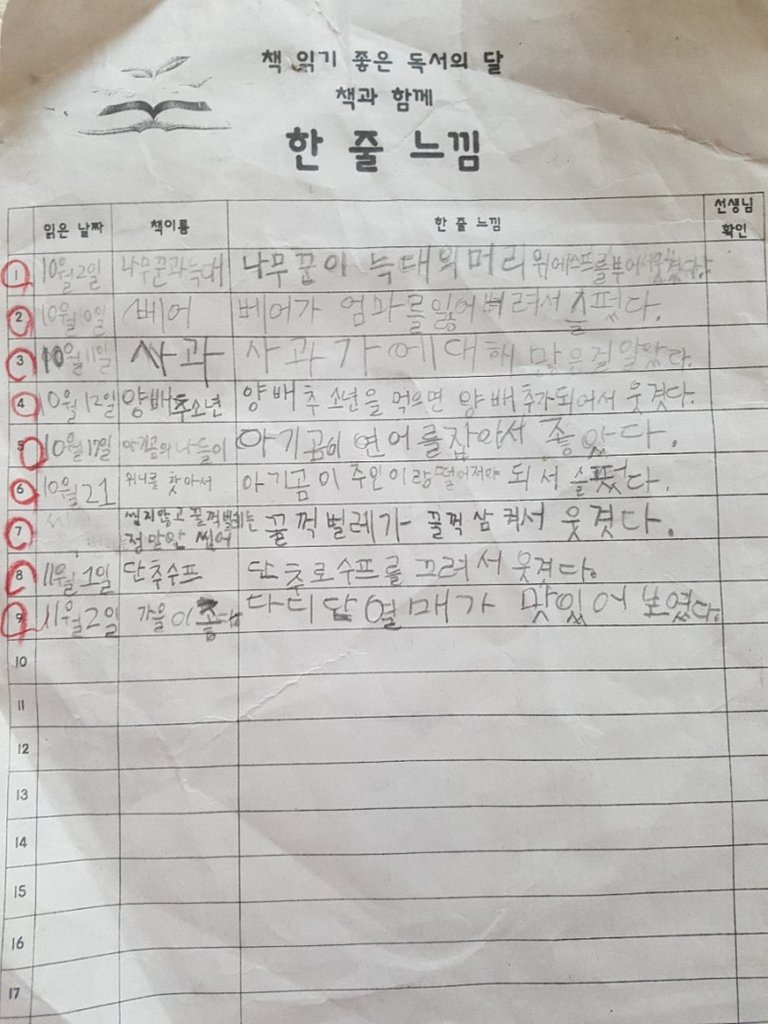 책 읽기 좋은 독서의 달
책과 함께
한 줄 느낌
읽은 날짜 책이름 한 줄 느낌 선생님 확인
1 10월 2일 나무꾼과 늑대 나무꾼이 늑대의 머리 위에 스프를 부어서 웃겼다.
2 10월 10일 베어 베어가 엄마를 잃어버려서 슬펐다.
3 10월 11일 사과 사과가 에 대해 많은걸 알았다.
4 10월 12일 양배추소년 양배추 소년을 먹으면 양배추가되어서 웃겼다.
5 10월 17일 아기곰의 나들이 아기곰이 연어를 잡아서 좋았다.
6 10월 21 위니를 찾아서 아기곰이 주인이랑 떨어져야 되서 슬펐다.
7 씹지않고 꿀꺽벌레는 정말안 씹어 꿀꺽벌레가 꿀꺽 삼켜서 웃겼다.
8 11월 1일 단추수프 단추로 수프를 끄려서 웃겼다.
9 11월 2일 가을이 좋다 다디단 열매가 맛있어 보였다.
10
11
12
13
14
15
16
17